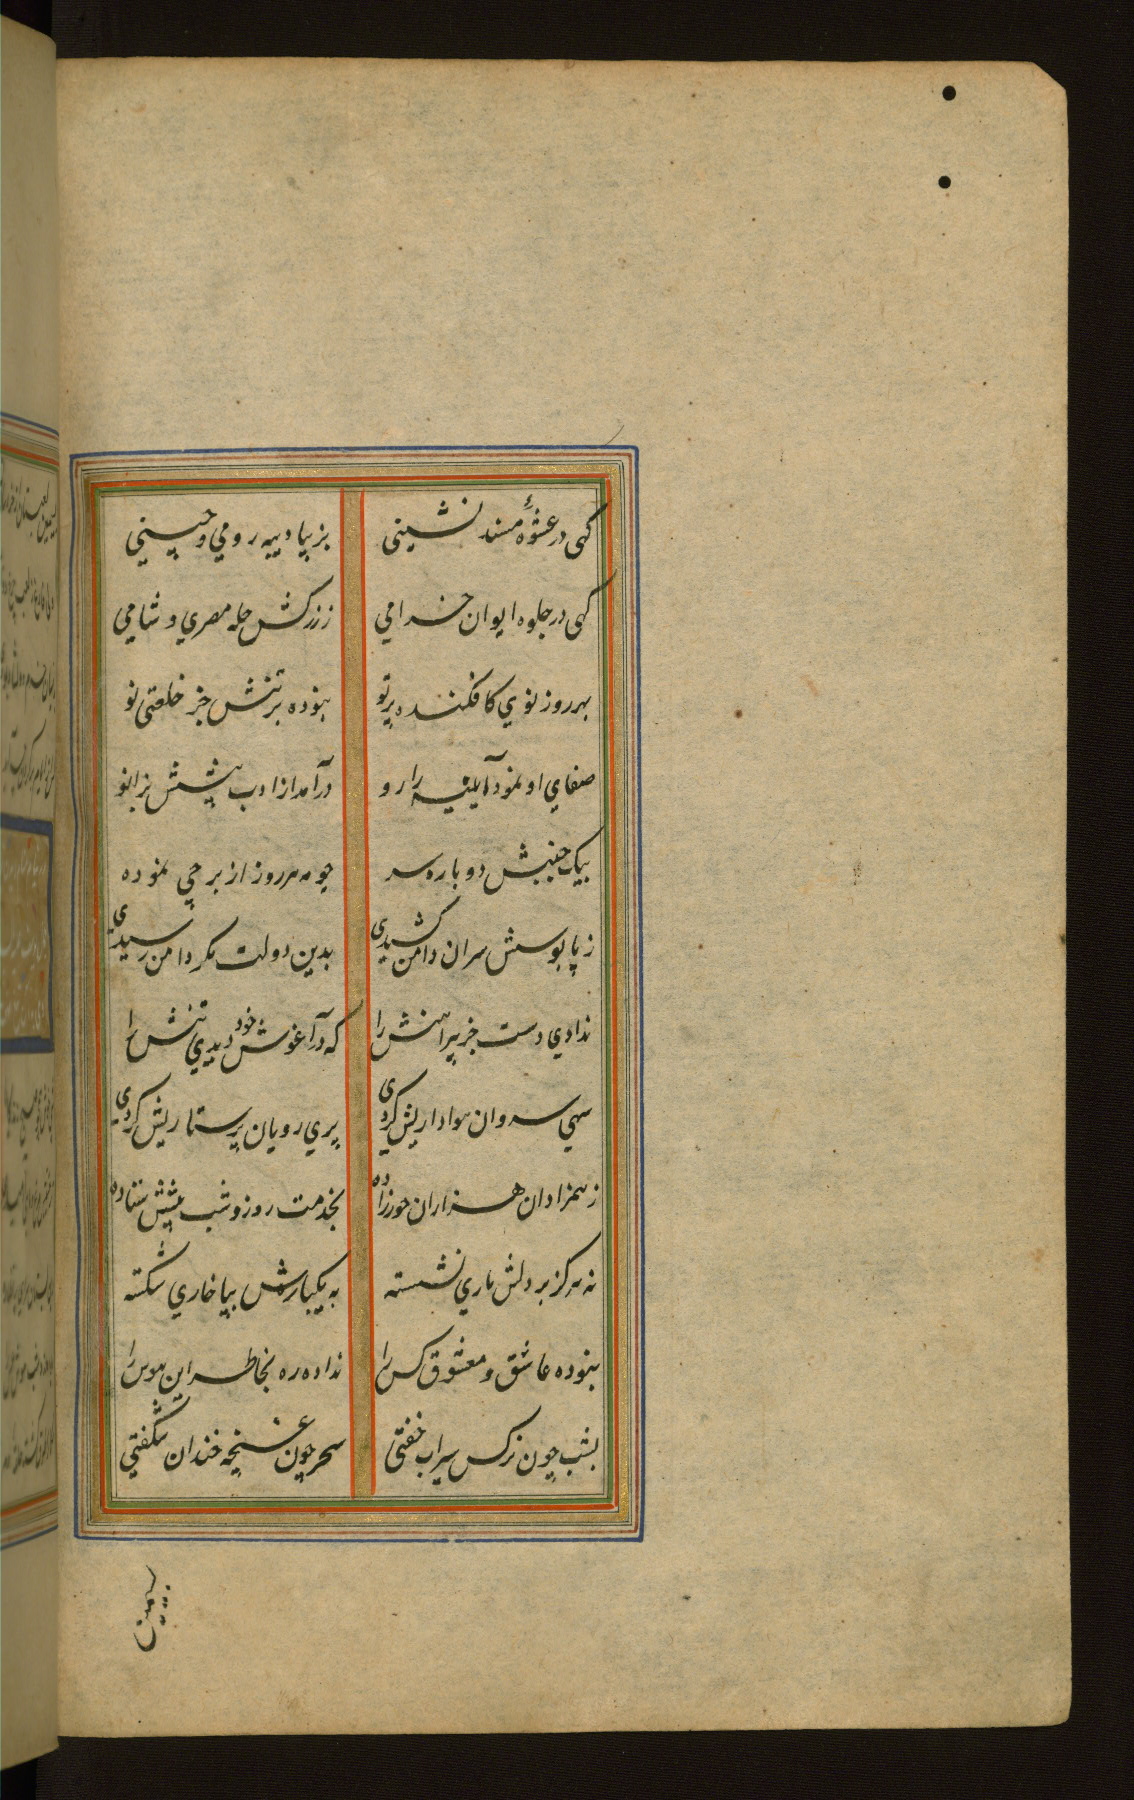 گهی در عشوهٔ مسند نشینی
بزیبا دیبه رومي و چینی
گهی در جلوه ایوان خرامي
ز زرکش حله مصري و شامي
بهر روز نوي کافکنده پرتو
نبوده بر تنش جز خلعتی نو
صفاي او نمود آیینه را رو
درآمد از ادب پیشش بزانو
بیک جنبش دوباره سر
چو مه هر روز از برجي نموده
ز پابوسش سران دامن کشیدی
بدین دولت مگر دامن رسیدی
ندادي دست جز پیراهنش را
که در آغوش خود دیدي تنش را
سهي سروان هواداریش کردی
پري رویان پرستاریش کردی
ز همزادان هزاران حورزاده
بخدمت روز و شب پیشش ستاده
نه هرگز بر دلش باري نشسته
به یکبارش بپا خاري شکسته
نبوده عاشق و معشوق کس را
نداده ره بخاطر این هوس را
بشب چون نرگس سیراب خفتی
سحر چون غنچه خندان شکفتي